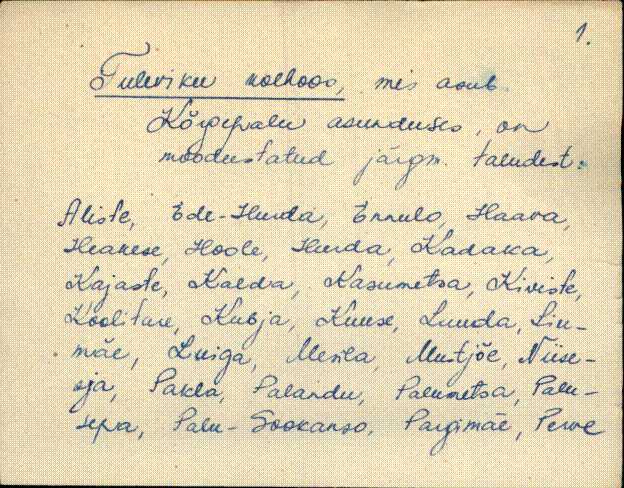 1.
Tuleviku kolhoos, mis asub
Kõrgepalu asunduses, on
moodustatud järgm. taludest:
Aliste, Ede-Hurda, Ennulo, Haava,
Heakese, Hoole, Hurda, Kadaka,
Kajaste, Kalda, Kasumetsa, Kiviste,
Koolitare, Kubja, Kuuse, Luuda, Liu-
mäe, Luiga, Mesila, Mustjõe, Niise-
oja, Pakla, Palandu, Palumetsa, Palu-
sepa, Palu-Sookanso, Pargimäe, Perve